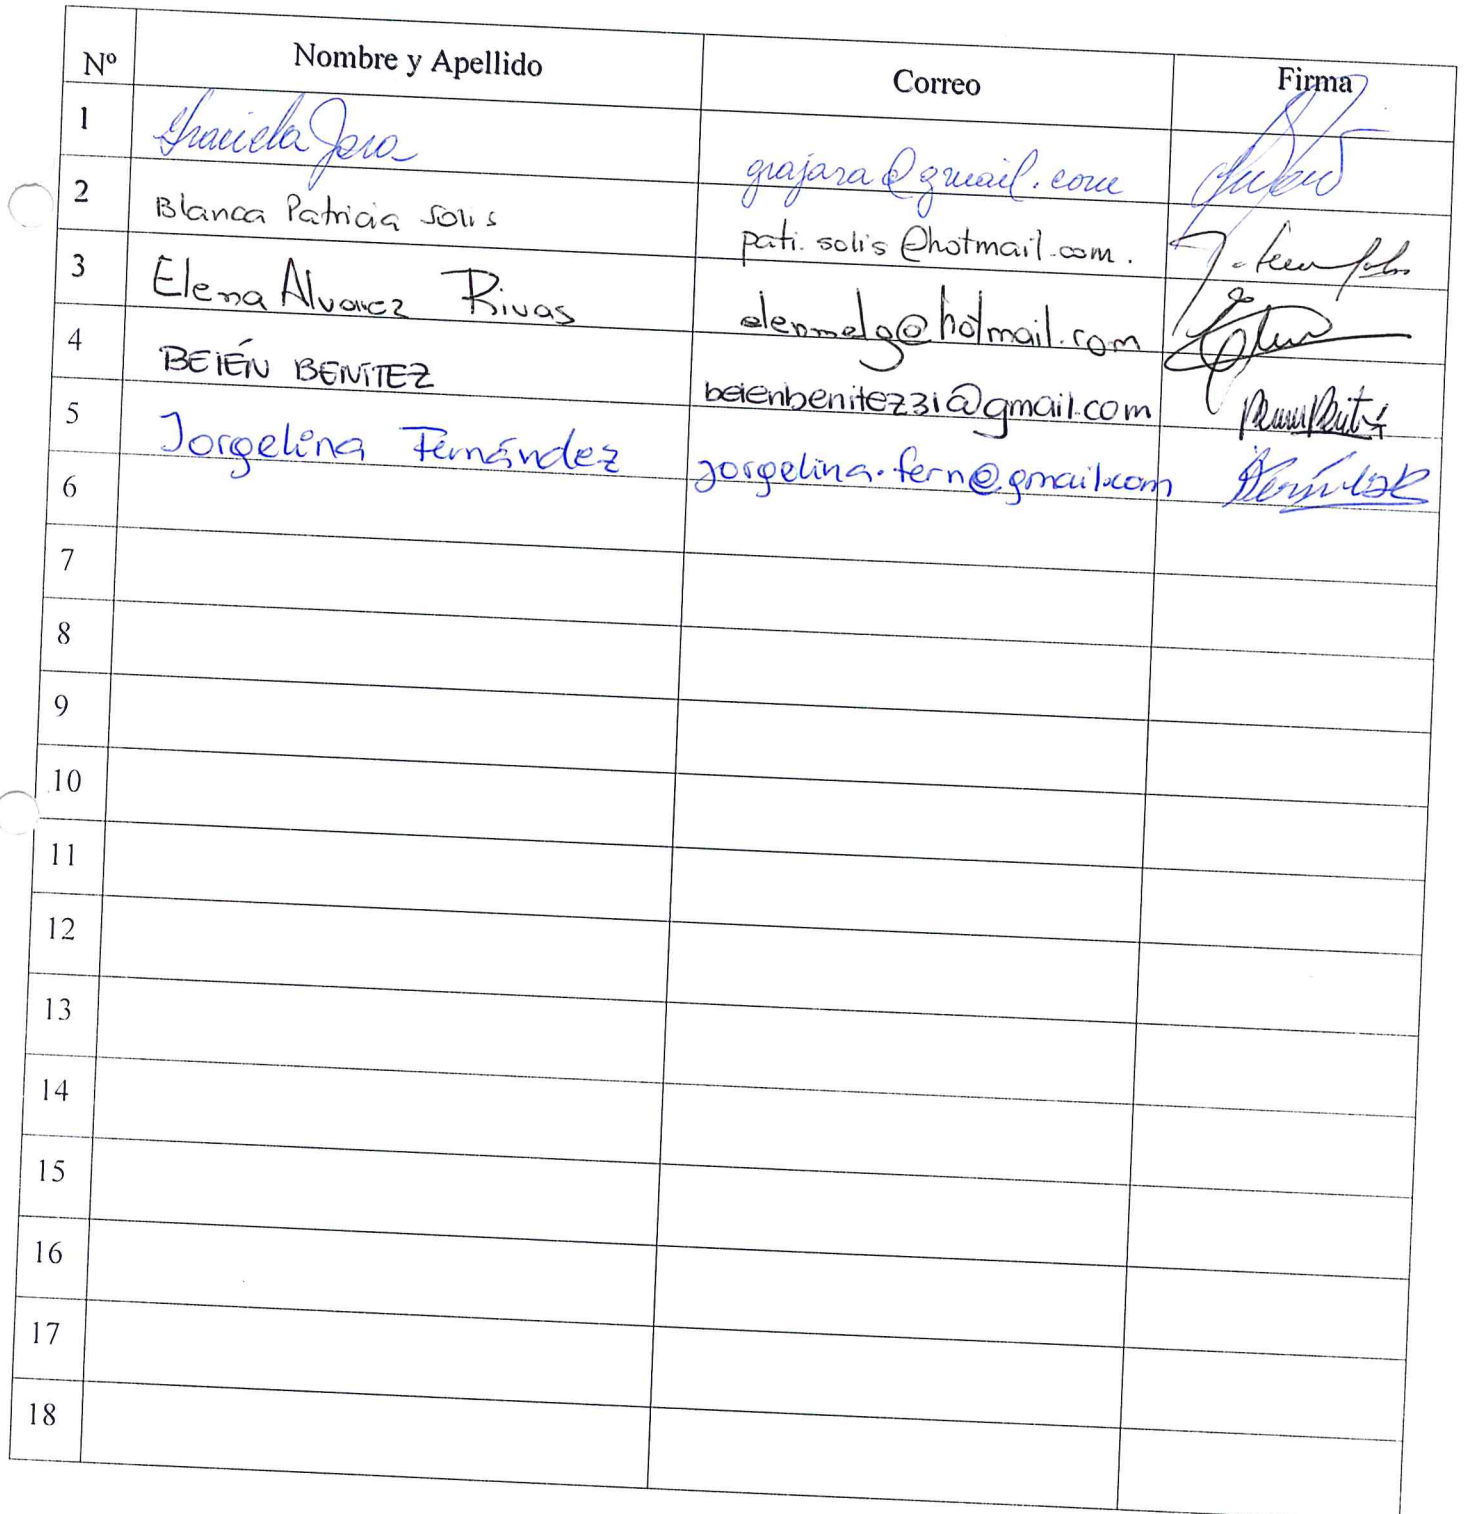 Nº Nombre y Apellido Correo Firma
1 Graciela Jara grajara@gmail.com
2 Blanca Patricia Solis pati.solis@hotmail.com.
3 Elena Alvarez Rivas elenmelg@hotmail.com
4 BELÉN BENÍTEZ belenbenitez31@gmail.com
5 Jorgelina Fernández jorgelina.fern@gmail.com
6
7
8
9
10
11
12
13
14
15
16
17
18